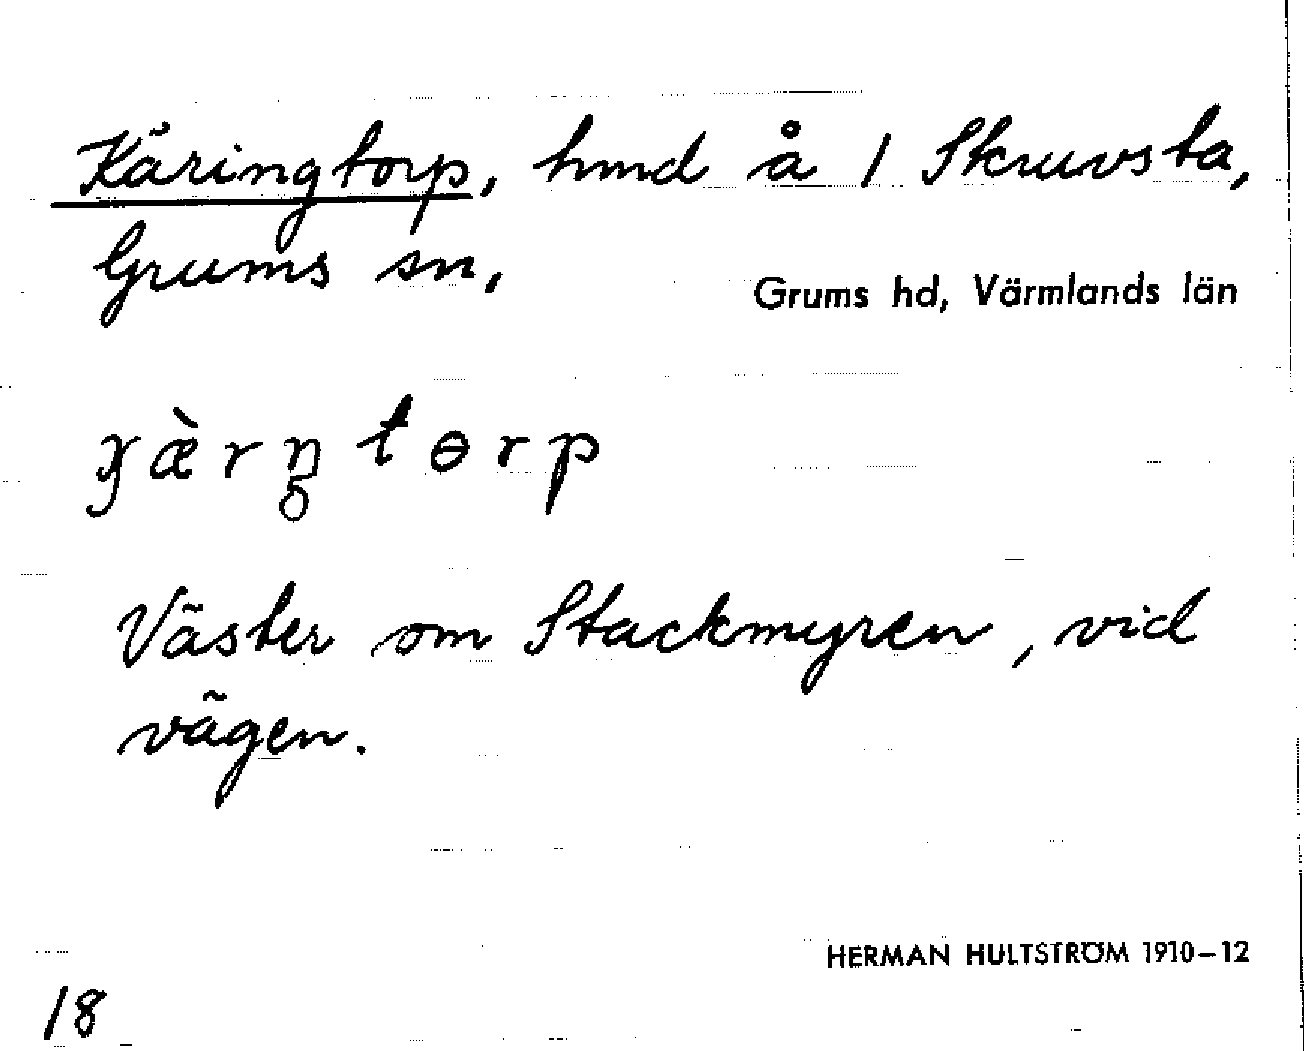 Käringtorp, hmd å 1 Skruvsta,
Grums sn,
Grums hd, Värmlands län
Väster om Stackmyren, vid
vägen.
HERMAN HULTSTRÖM 1910–12
18